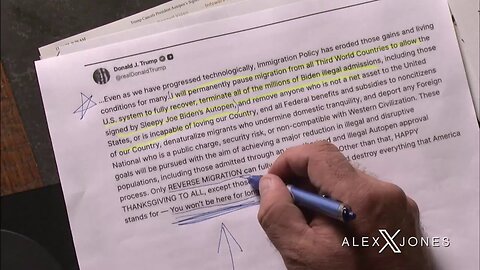 Trump Cancels President Autopen's
Donald J. Trump
@realDonaldTrump
...Even as we have progressed technologically, Immigration Policy has eroded those gains and living
conditions for many. I will permanently pause migration from all Third World Countries to allow the
U.S. system to fully recover, terminate all of the millions of Biden illegal admissions, including those
signed by Sleepy Joe Biden's Autopen, and remove anyone who is not a net asset to the United
States, or is incapable of loving our Country, end all Federal benefits and subsidies to noncitizens
of our Country, denaturalize migrants who undermine domestic tranquility, and deport any Foreign
National who is a public charge, security risk, or non-compatible with Western Civilization. These
goals will be pursued with the aim of achieving a major reduction in illegal and disruptive
populations, including those admitted through an and illegal Autopen approval
process. Only REVERSE MIGRATION can fully Other than that, HAPPY
THANKSGIVING TO ALL, except those destroy everything that America
stands for — You won't be here for long
ALEX JONES